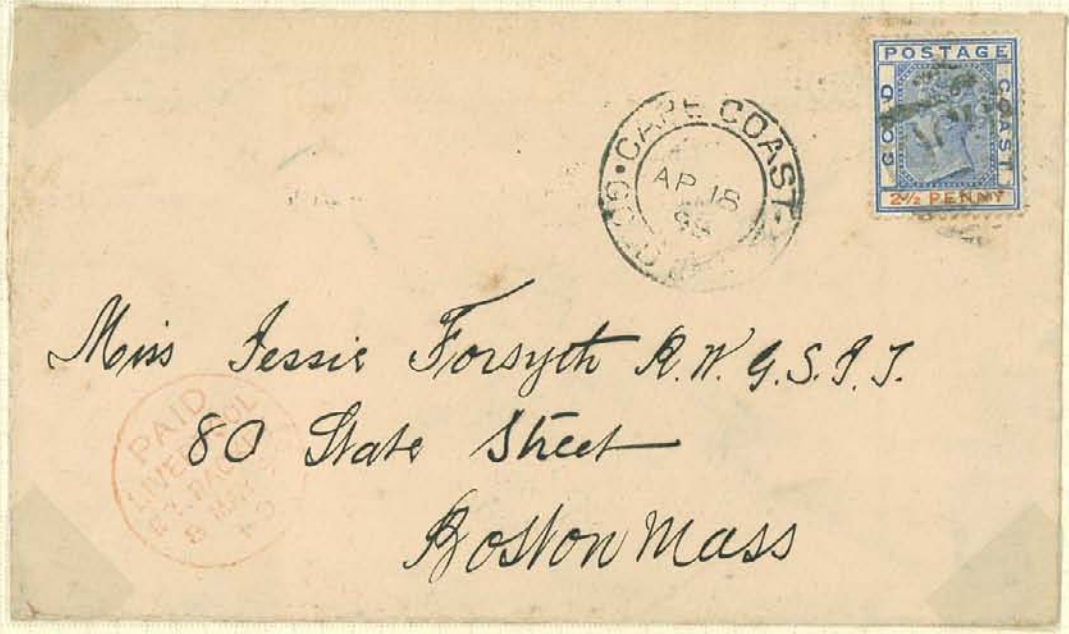 POSTAGE
GOLD COAST
2½ PENNY
CAPE COAST
GOLD
AP 18
Miss Jessie Forsyth R.W.G.S.J.T.
80 State Street
Boston Mass
PAID
LIVERPOOL
PACKET
8 MAY